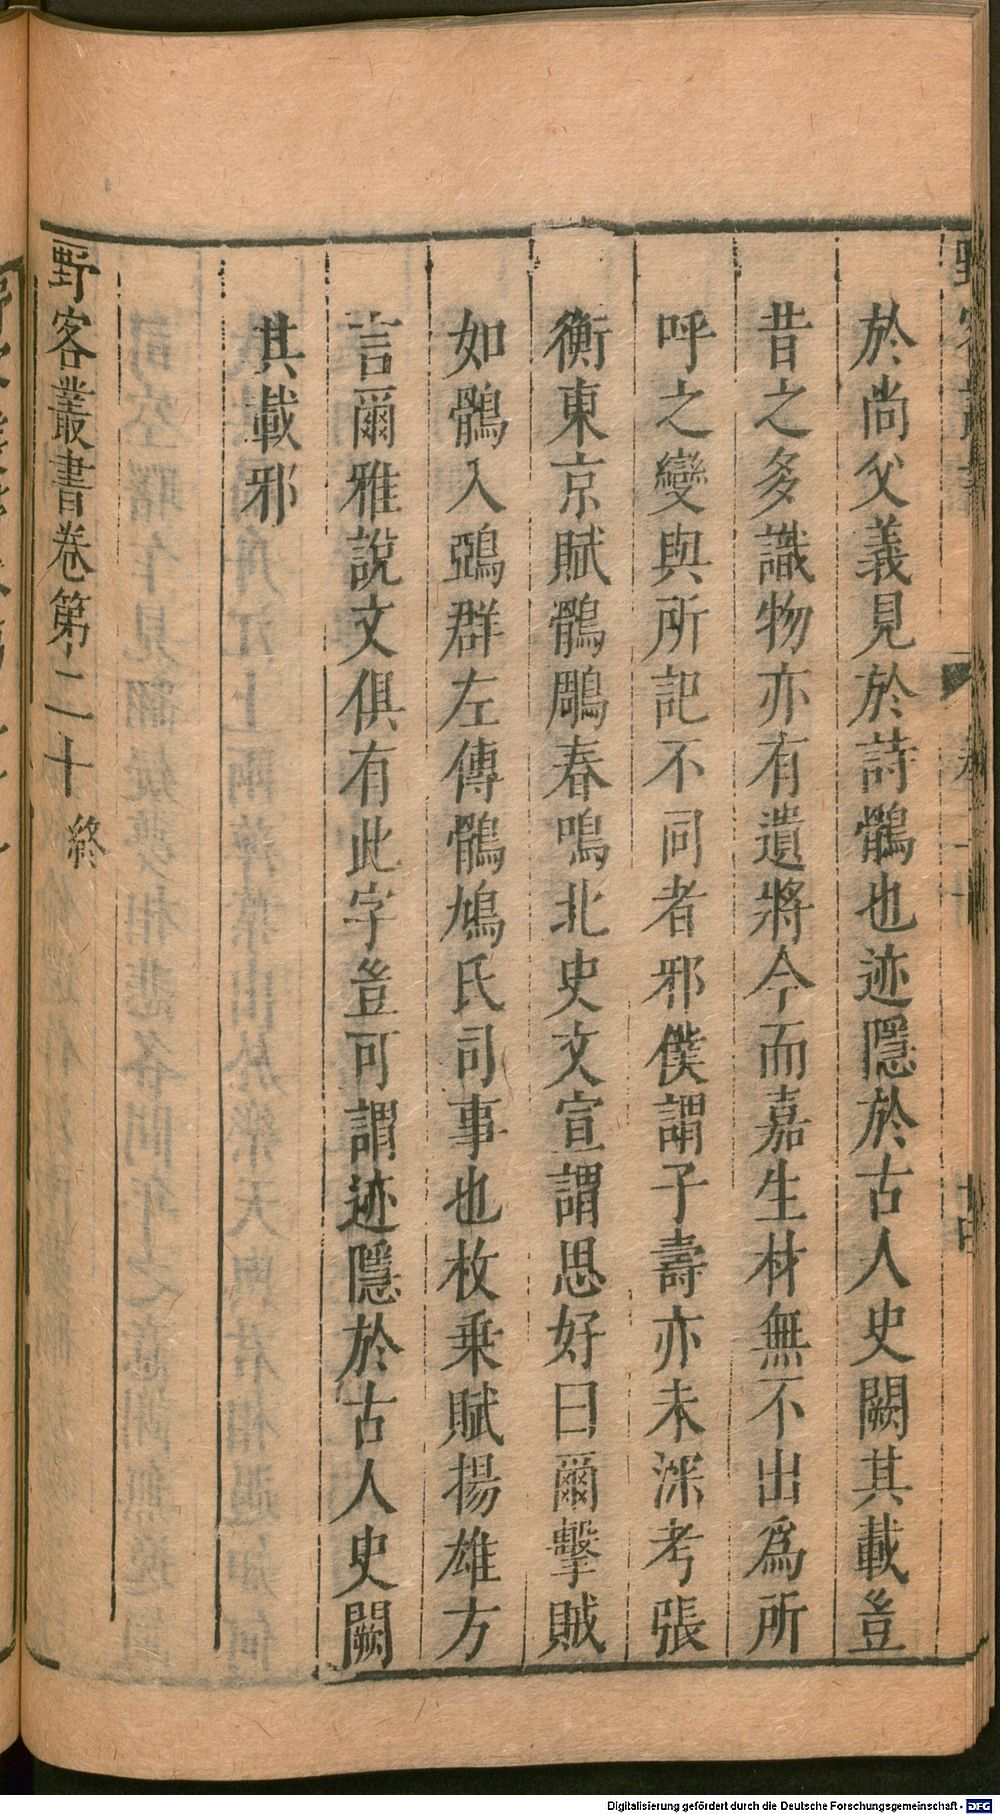 於尚父義見於詩鶻也迹隱於古人史闕其載豈
昔之多識物亦有遺將今而嘉生材無不出爲所
呼之變與所記不同者邪僕謂子壽亦未深考張
衡東京賦鶻鵰春鳴北史文宣謂思好曰爾擊賊
如鶻入鵶群左傳鶻鳩氏司事也枚乗賦揚雄方
言爾雅說文俱有此字豈可謂迹隱於古人史闕
其載邪
野客叢書卷第二十 終
Digitalisierung gefördert durch die Deutsche Forschungsgemeinschaft - DFG